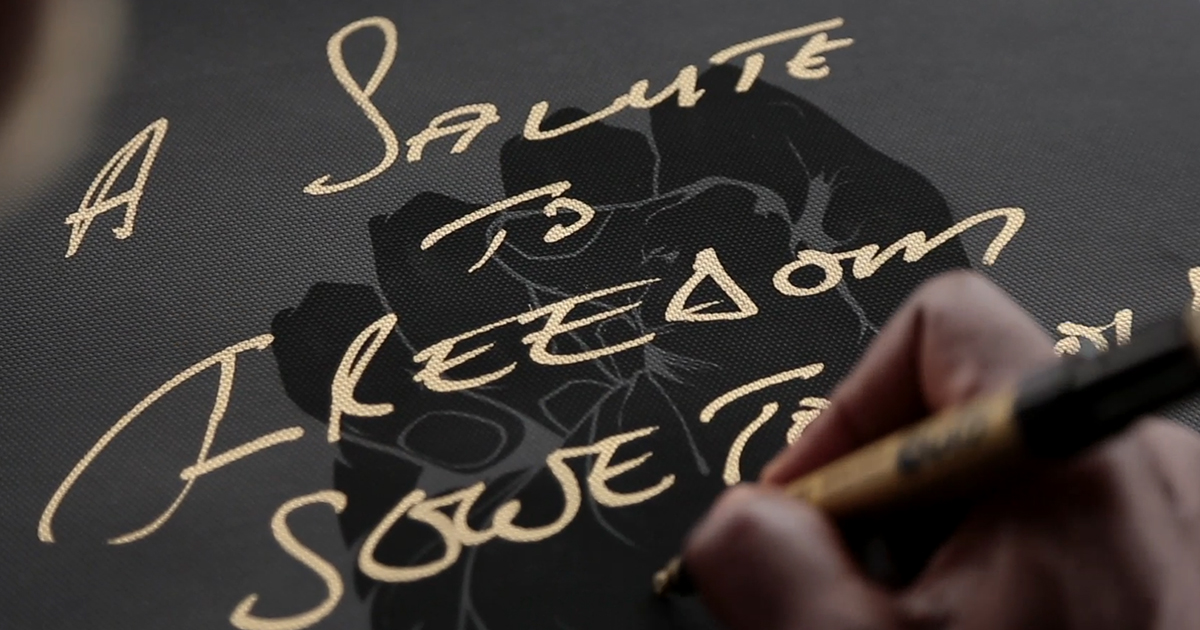 A SALUTE
TO
FREEDOM
SOWETO